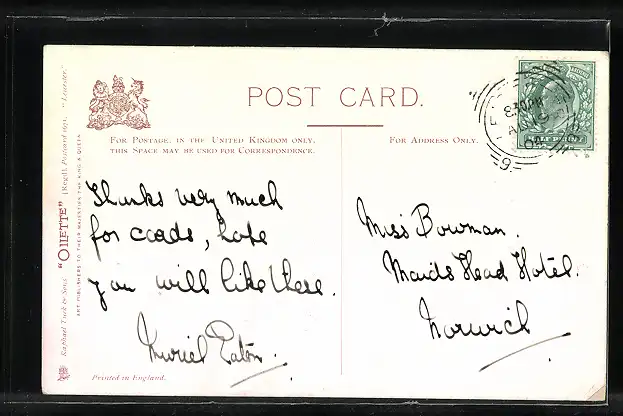 POST CARD.
FOR POSTAGE, IN THE UNITED KINGDOM ONLY,
THIS SPACE MAY BE USED FOR CORRESPONDENCE.
FOR ADDRESS ONLY.
Thanks very much
for cards, hope
you will like these.
Muriel Eaton.
Miss Bowman.
Maids Head Hotel.
Norwich
Raphael Tuck & Sons' "OILETTE" [Regd.] Postcard "Leicester."
ART PUBLISHERS TO THEIR MAJESTIES THE KING & QUEEN
Printed in England.
8.30 PM
9